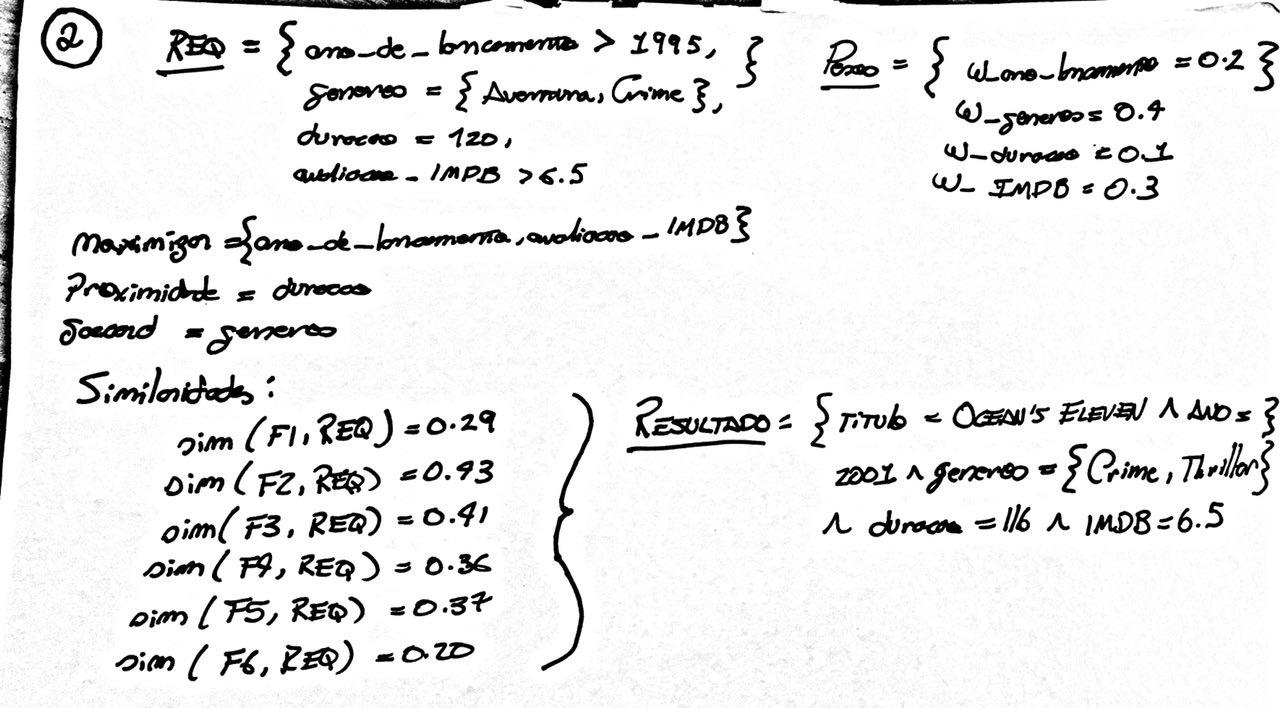 2
REQ = { ano_de_lancamento > 1995, }
genereo = { Aventura, Crime },
duracao = 120,
avaliacao - IMDB > 6.5
Pesos = { w_ano_lancamento = 0.2 }
w_generos = 0.4
w_duracao = 0.1
w_ IMDB = 0.3
Maximizar = {ano_de_lancamento, avaliacao - IMDB}
Proximidade = duracao
Jaccard = genereo
Similaridades:
sim (F1, REQ) = 0.29
sim (F2, REQ) = 0.43
sim( F3, REQ) = 0.41
sim ( F4, REQ ) = 0.36
sim ( F5, REQ) = 0.37
sim ( F6, REQ) = 0.20
RESULTADO = { TiTulo = OCEAN'S ELEVEN ∧ ANO = }
2001 ∧ genereo = {Crime, Thriller}
∧ duracao = 116 ∧ IMDB = 6.5